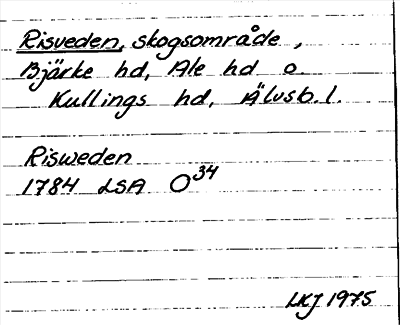 Risveden, skogsområde,
Bjärke hd, Ale hd o.
Kullings hd, Älvsb. l.
Risweden
1784 LSA O34
LKJ 1975